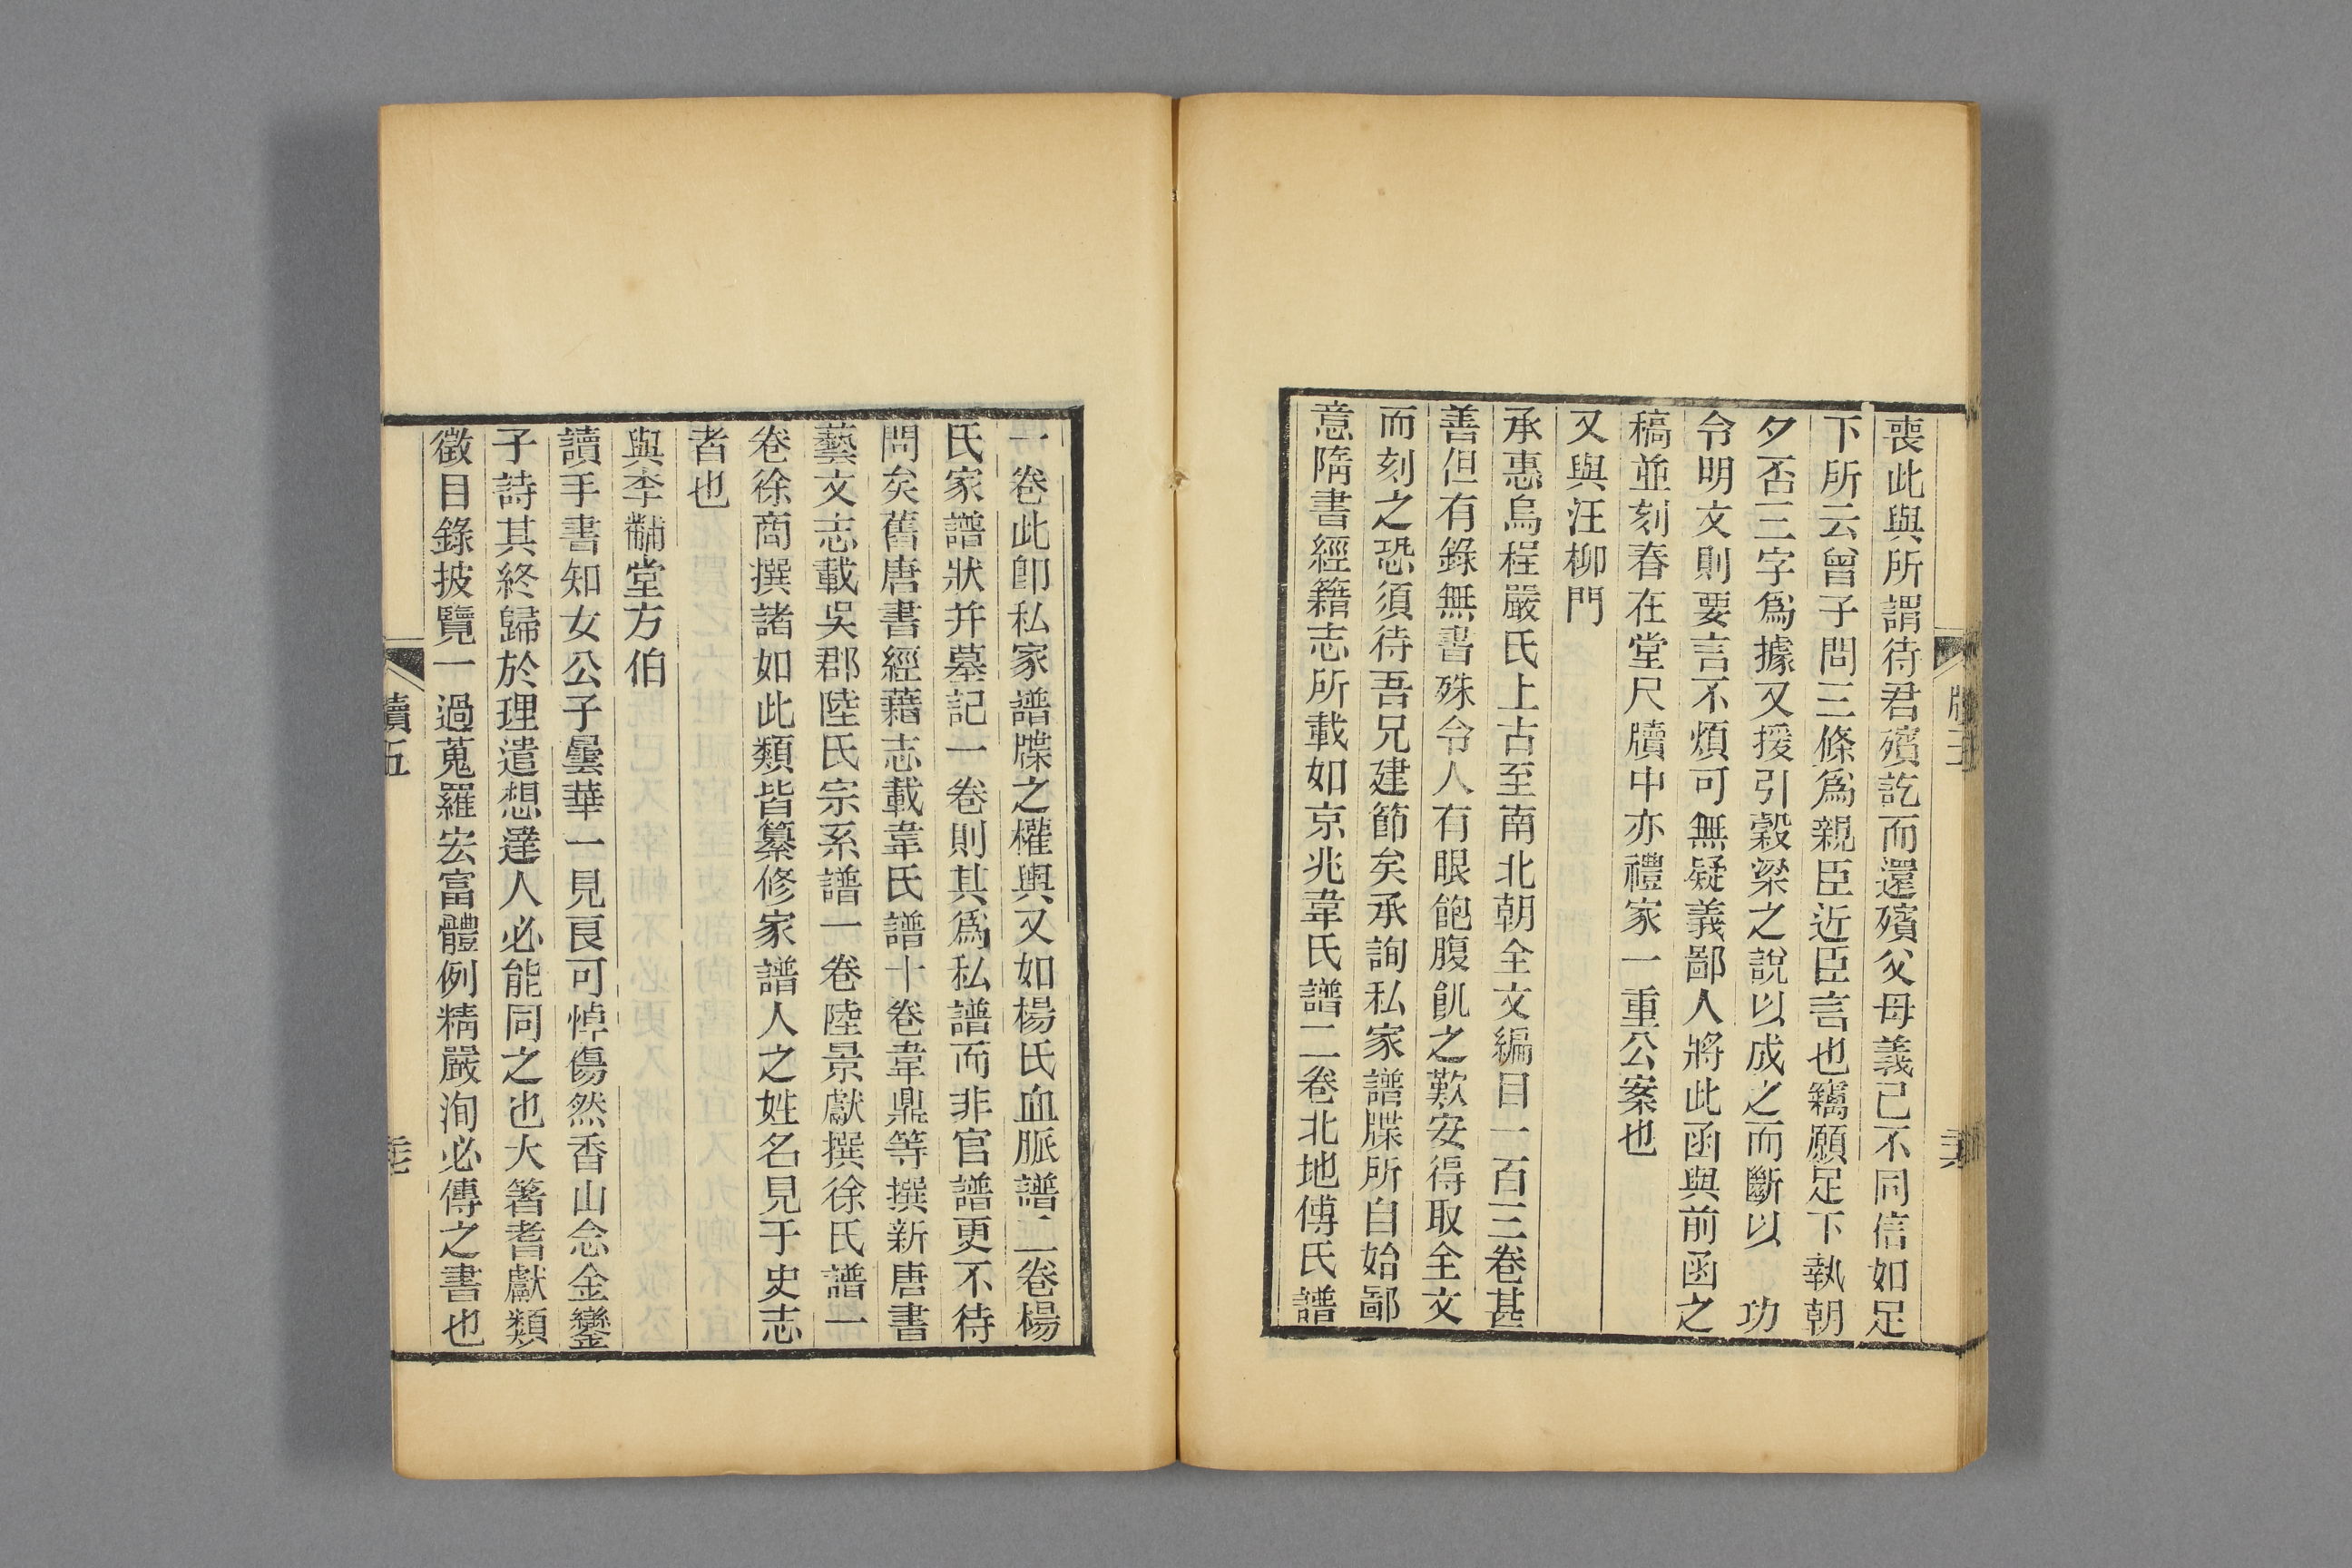 喪此與所謂待君殯訖而還殯父母義已不同信如足
下所云曾子問三條爲親臣近臣言也竊願足下執朝
夕否三字爲據又援引穀梁之說以成之而斷以 功
令明文則要言不煩可無疑義鄙人將此函與前函之
稿並刻春在堂尺牘中亦禮家一重公案也
又與汪柳門
承惠烏程嚴氏上古至南北朝全文編目一百三卷甚
善但有錄無書殊令人有眼飽腹飢之歎安得取全文
而刻之恐須待吾兄建節矣承詢私家譜牒所自始鄙
意隋書經籍志所載如京兆韋氏譜二卷北地傅氏譜
一卷此卽私家譜牒之權輿又如楊氏血脈譜二卷楊
氏家譜狀并墓記一卷則其爲私譜而非官譜更不待
問矣舊唐書經藉志載韋氏譜十卷韋鼎等撰新唐書
藝文志載吳郡陸氏宗系譜一卷陸景獻撰徐氏譜一
卷徐商撰諸如此類皆纂修家譜人之姓名見于史志
者也
與李黼堂方伯
讀手書知女公子曇華一見良可悼傷然香山念金鑾
子詩其終歸於理遣想達人必能同之也大箸耆獻類
徵目錄披覽一過蒐羅宏富體例精嚴洵必傳之書也
牘五